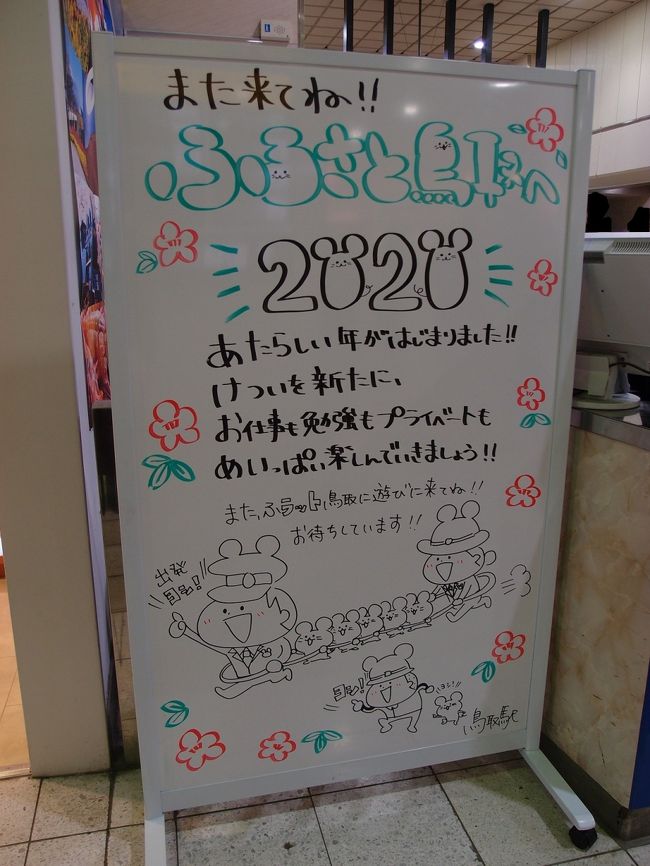 また来てね!!
ふるさと鳥取へ
2020
あたらしい年がはじまりました!!
けついを新たに、
お仕事も勉強もプライベートも
めいっぱい楽しんでいきましょう!!
また、ふらっと鳥取に遊びに来てね!!
お待ちしています!!
出発
目多!
目多!
ヨシ!!
鳥取駅